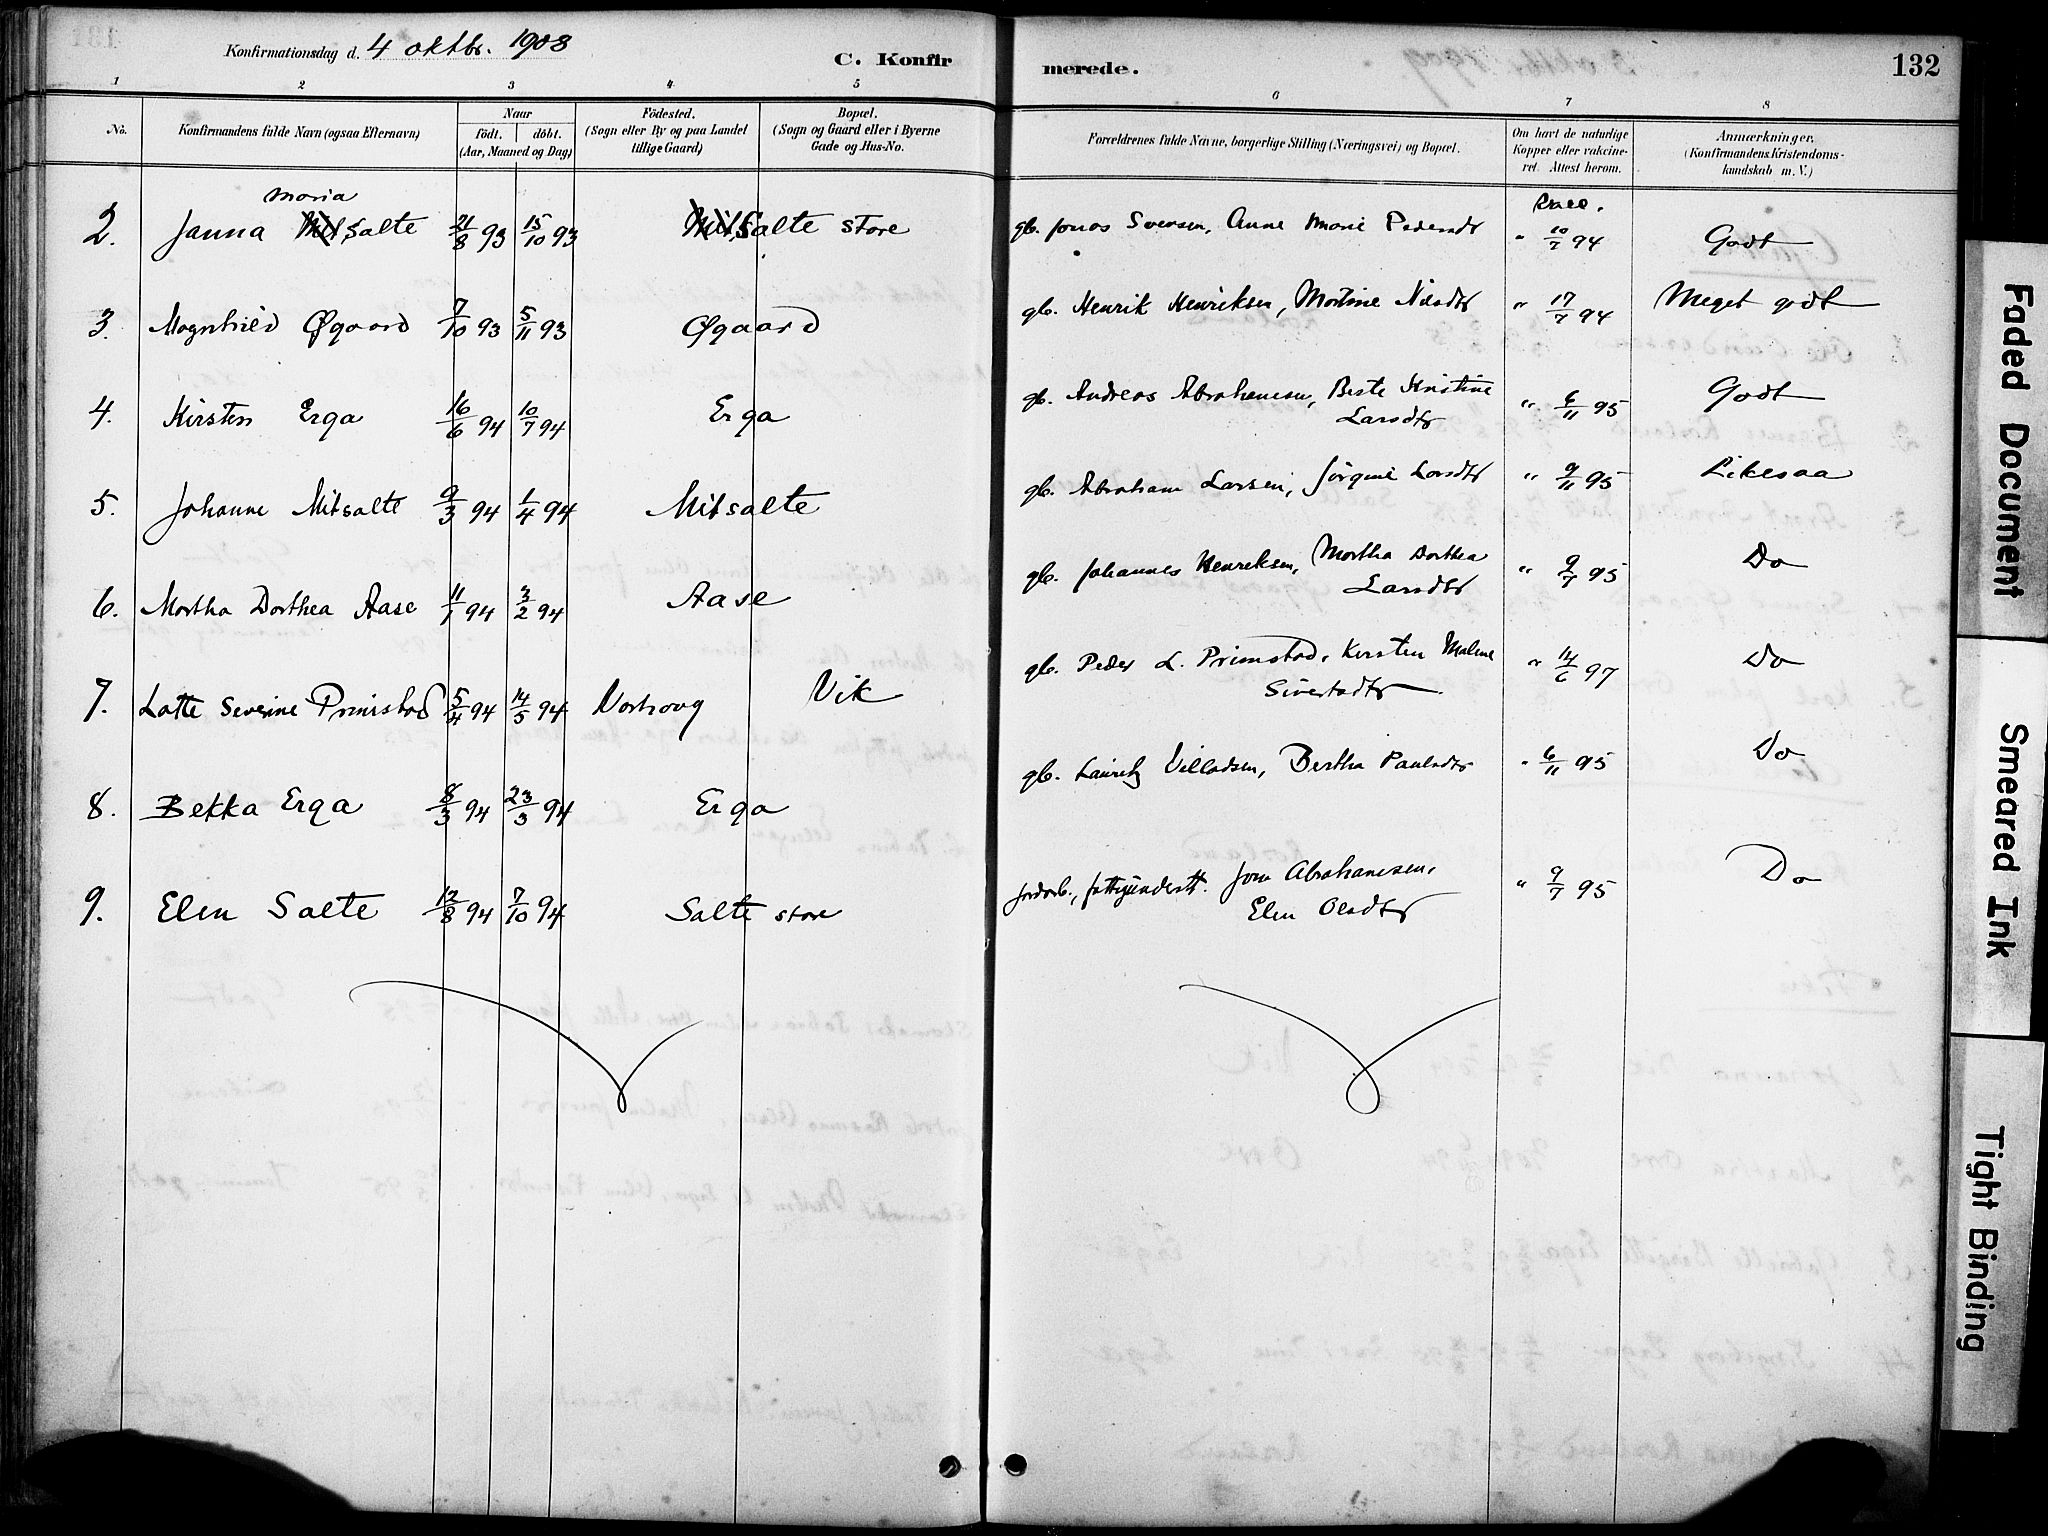 Konfirmationsdag d. 4 oktbr. 1908
C. Konfirmerede.
132
1 2 3 4 5 6 7 8
No.
Konfirmandens fulde Navn (ogsaa Efternavn)
Naar
födt. döbt.
(Aar, Maaned og Dag)
Födested.
(Sogn eller By og paa Landet
tillige Gaard)
Bopæl.
(Sogn og Gaard eller i Byerne
Gade og Hus-No.
Forældrenes fulde Navne, borgerlige Stilling (Næringsvei) og Bopæl.
Om havt de naturlige
Kopper eller vakcine-
ret. Attest herom.
Anmærkninger,
(Konfirmandens Kristendoms-
kundskab m. V.)
Maria
2. Janna Salte 21/8 93 15/10 93 Salte store gb. Jonas Svensen, Anne Marie Pedersdt " 10/7 94 Godt
3. Magnhild Øgaard 7/10 93 5/11 93 Øgaard gb. Henrik Henriksen, Martine Nilsdtr " 17/7 94 Meget godt
4. Kirsten Erga 16/6 94 10/7 94 Erga gb. Andreas Abrahamsen, Berte Kristine
Larsdtr " 6/11 95 Godt
5. Johanne Mitsalte 9/3 94 1/4 94 Mitsalte gb. Abraham Larsen, Jörgine Larsdtr " 9/11 95 Likesaa
6. Martha Dorthea Aase 11/1 94 3/2 94 Aase gb. Johannes Henriksen, Martha Dorthea
Larsdtr " 9/7 95 Do
7. Latte Severine Primstad 5/4 94 14/5 94 Varhoug Vik gb. Peder L. Primstad, Kirsten Malene
Sivertsdtr " 14/6 97 Do
8. Bekka Erga 8/3 94 23/3 94 Erga gb. Lauritz Villadsen, Bertha Paulsdtr " 6/11 95 Do
9. Elen Salte 12/8 94 7/10 94 Salte store Jordarb., fattigunderst. Jon Abrahamsen,
Elen Olsdtr " 9/7 95 Do
Faded Document
Smeared Ink
Tight Binding